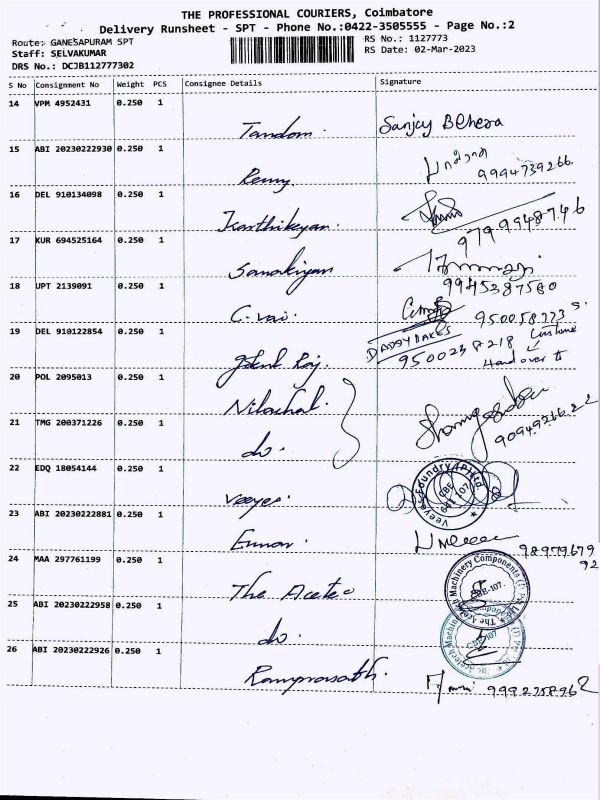 THE PROFESSIONAL COURIERS, Coimbatore
Delivery Runsheet - SPT - Phone No.:0422-3505555 - Page No.:2
Route: GANESAPURAM SPT
RS No.: 1127773
Staff: SELVAKUMAR
RS Date: 02-Mar-2023
DRS No.: DCJB112777302
S No Consignment No Weight PCS Consignee Details Signature
14 VPM 4952431 0.250 1
Tandom. Sanjay Behera
15 ABI 20230222930 0.250 1
Remy. 9994739266.
16 DEL 910134098 0.250 1
Karthikeyan. 9799948746
17 KUR 694525164 0.250 1
Sanakiyan
18 UPT 2139091 0.250 1
9945387580
C. vai. 950058773
19 DEL 910122854 0.250 1
DADDY BAKES
9500238218
Hand over to
20 POL 2095013 0.250 1
Nilachal.
21 TMG 200371226 0.250 1
do.
22 EDQ 18054144 0.250 1
Veeyes. Veeyes Foundry (P) Ltd CBE 641 107
23 ABI 20230222881 0.250 1
98979679
92
24 MAA 297761199 0.250 1
The Acetec The Acetech Machinery Components (I) Pvt Ltd CBE-107.
25 ABI 20230222958 0.250 1
do. CBE-107
26 ABI 20230222926 0.250 1
Ramprasath. 9992758962